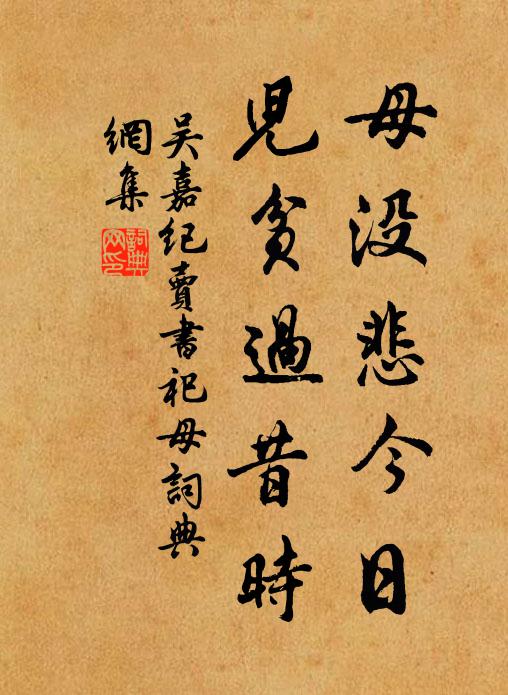 母没悲今日
兒貧過昔時
吴嘉纪賣書祀母詞典
網集
詞典網印